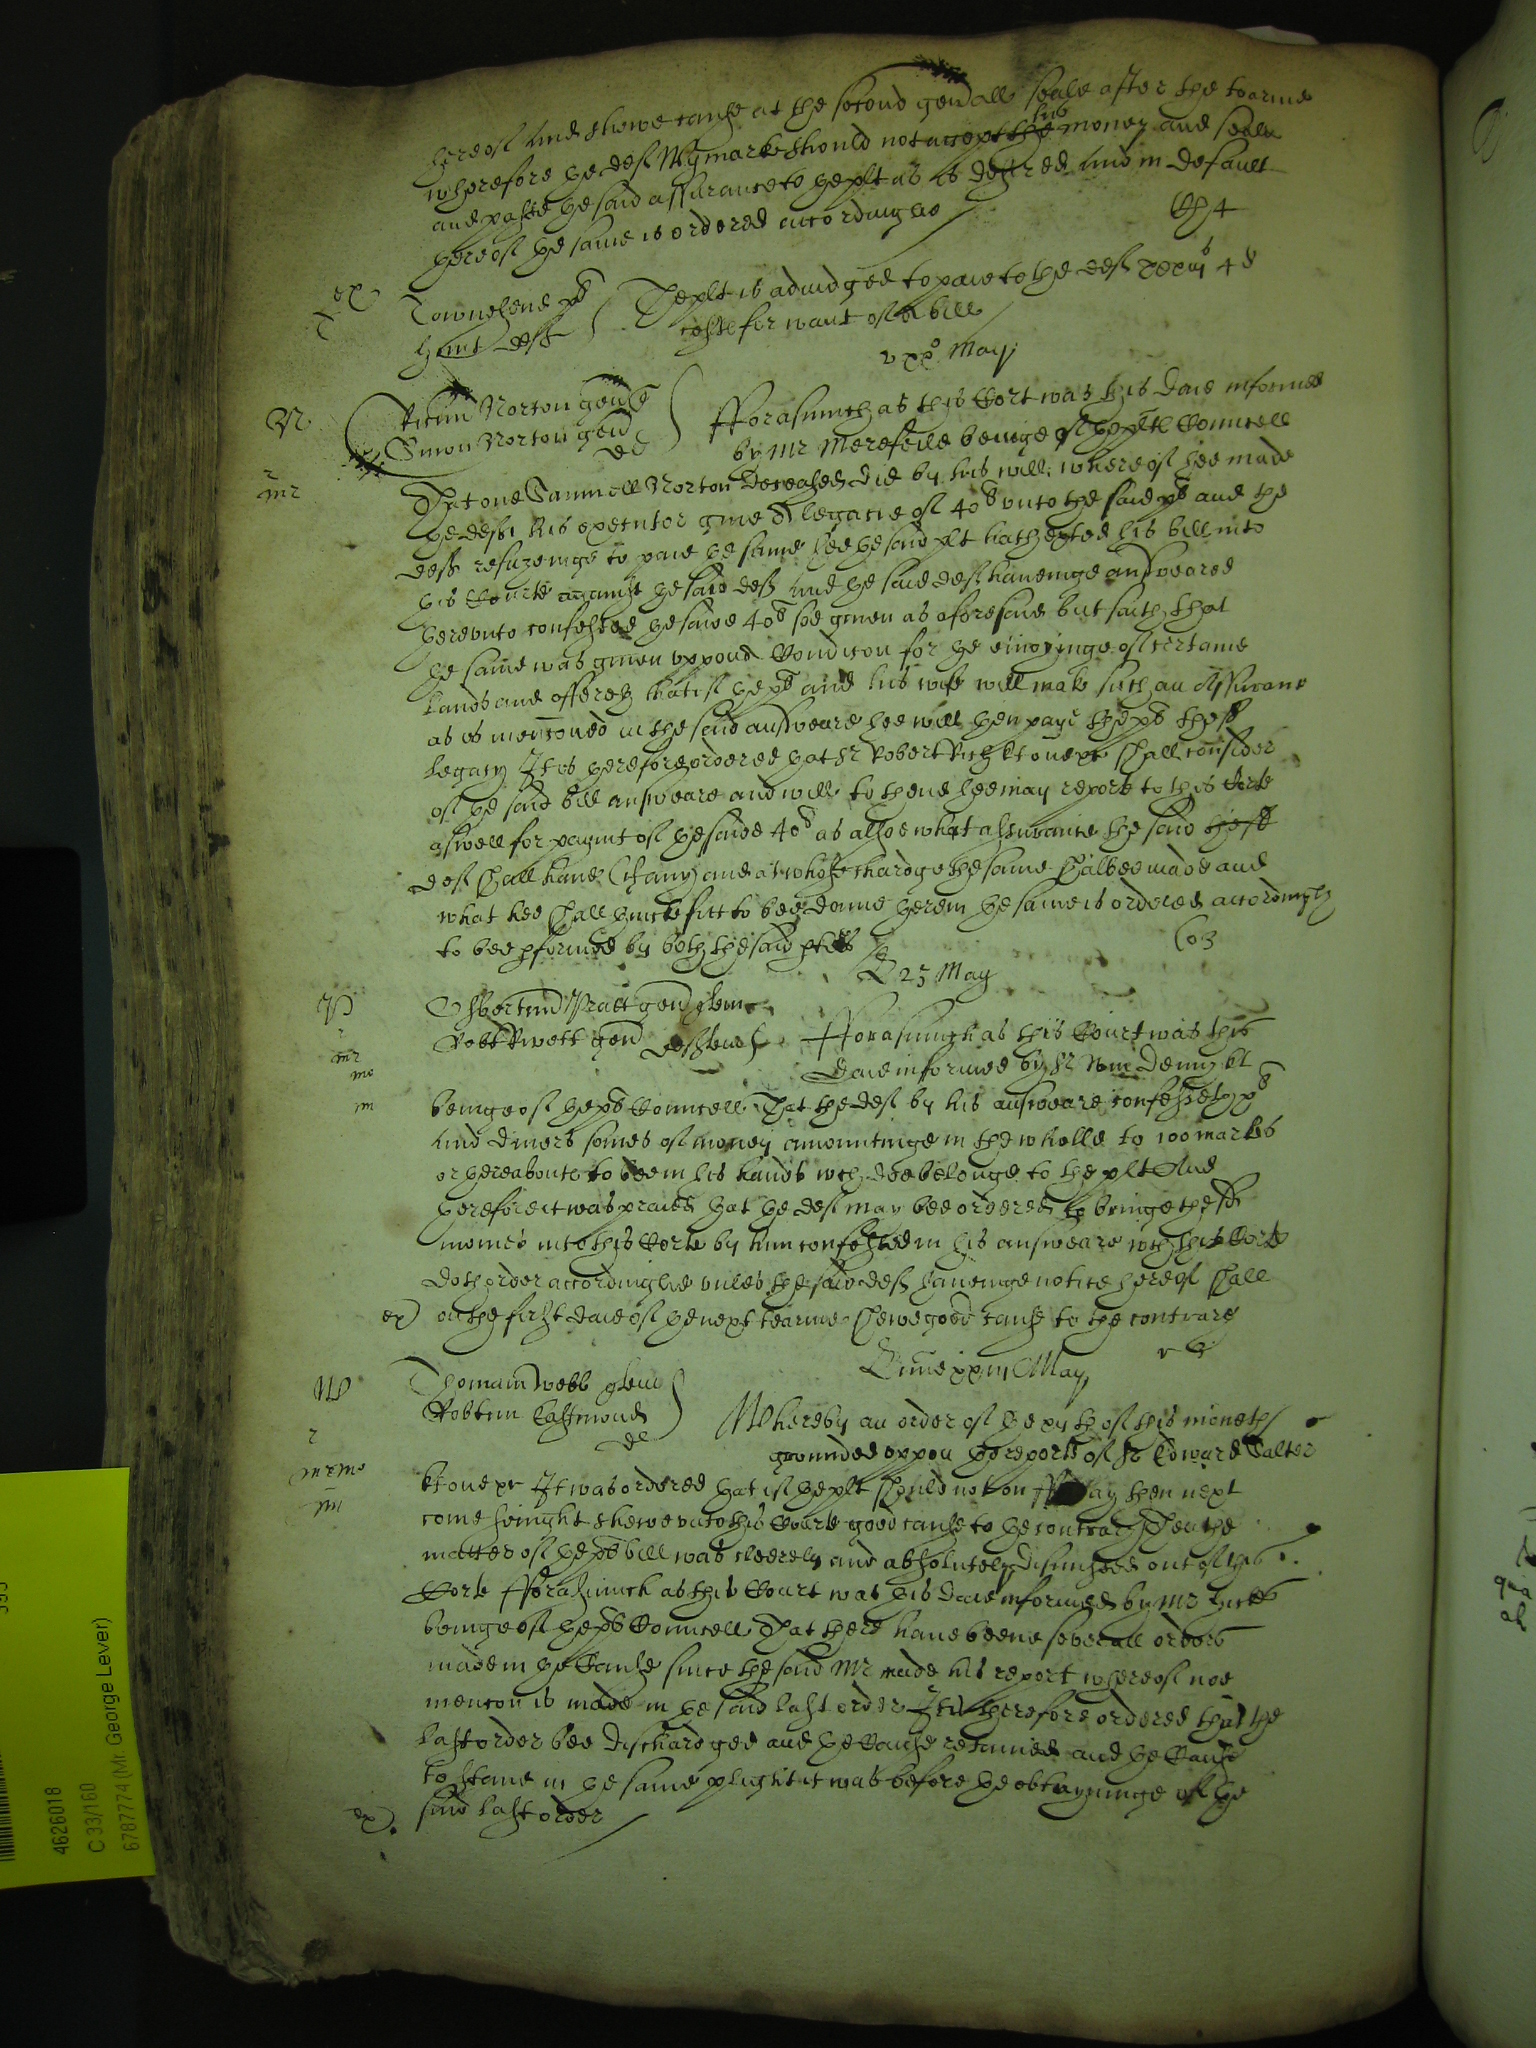 hereof and shewe cause at the second gen~all seale after the tearme
wherefore ye def Wigmarke should not accept the his money and seale
and passe ye said assurance to ye plt as is desired and in default
hereof ye same is ordered accordinglie
ex
Townesend plt
Hunt deft
The plt is adiudged to paie to the def xxxiiis 4d
costs for want of a bill
xxo May
N
mr
Norton gen quer
Simon Norton gen
def
Fforasmuch as this Cort was this daie informed
by Mr Merefeild beinge of ye plts Councell
That one Samuell Norton deceased did by his will whereof hee made
ye deft his executor give a legacie of 40s unto the said plt and the
deft refuzeinge to paie ye same hee ye said plt hath exhibited his bill into
this Courte against ye said def and ye said def haveinge answeared
hereunto confessed ye saide 40s soe given as aforesaid but saith that
ye same was given uppon Condicon for ye enioyinge of certaine
lands and offereth that if ye plt and his wife will make such an Assurance
as is menconed in the said answeare hee will then paye the plt the sd
legacy It is therefore ordered yat Sr Robert Rich kt one &c shall consider
of ye said bill answeare and will to thend hee may reporte to this Corte
aswell for paymt of ye saide 40s as alsoe what assurance the said
def shall have (if any) and at whose chardge the same shalbee made and
what hee shall thincke fitt to bee donne herein ye same is ordered accordingly
to bee pformed by both the said pties
D 25 May
P
mr
Pratt gen quer
Robt Kwett gen defend
Fforasmuch as this Court was this
daie informed by Sr Wm Denny kt
m
beinge of ye plts Councell That the def by his answeare confesseth
and divers somes of money amountinge in the wholle to 100 markes
or thereabouts to bee in his hands wch doe belonge to the plt And
therefore it was praied yat ye def may bee ordered to bringe the sd
monies into this Corte by him confessed in his answeare wch this Corte
doth order accordinglie unles the said def haveinge notice hereof shall
ex on the first daie of ye next tearme shewe good cause to the contrary
Lune xxiii May
W
Thomam Webb quer
Robtum Eastmond
def
Whereby an order of ye xijth of this moneth
grounded uppon ye reporte of Sr Edward Salter
kt one &c It was ordered yat if ye plt should not on ffriday then next
come sevnight shewe unto this Courte good cause to ye contrary Then the
matter of ye plts bill was cleerely and absolutely dismissed out of this
Corte Fforasmuch as this Court was this daie informed by Mr
beinge of ye plts Councell That there have beene severall orders
made in ye Cause since the said Mr made his report whereof noe
mencon is made in ye said last order It is therefore ordered that the
last order bee dischardged and ye Cause retained and ye Cause
to stand in ye same plight it was before ye obtayninge of ye
ex. said last order
4626018
C 33/160
6787774 (Mr. George Lever)